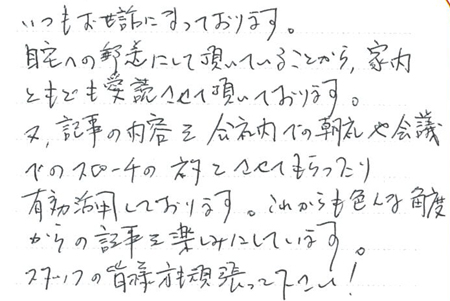 いつもお世話になっております。
自宅への郵送にして頂いていることから、家内
ともども愛読させて頂いております。
又、記事の内容を会社内での朝礼や会議
でのスピーチのネタとさせてもらったり
有効活用しております。これからも色んな角度
からの記事を楽しみにしています。
スタッフの皆様方も頑張って下さい！